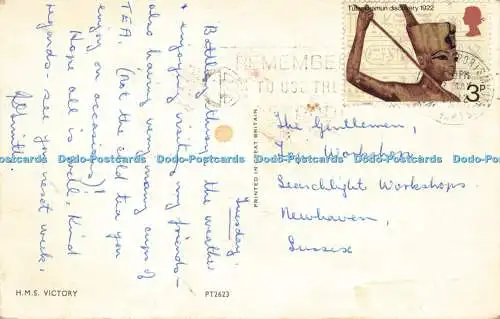 Tuesday.
Battling thro' the weather
& enjoying visiting my friends -
also having very many cups of
TEA. (not the cold tea you
enjoy on occasions)!
Hope all is well, Kind
regards - see you next week,
H.M.S. VICTORY
PT2623
PRINTED IN GREAT BRITAIN
REMEMBER
TO USE THE
Tutankhamun discovery 1922
3P
The Gentlemen,
Workshop
Searchlight Workshops.
Newhaven,
Sussex
Dodo-Postcards Dodo-Postcards Dodo-Postcards Dodo-Postcards Dodo-Postcards Dodo-Postcards